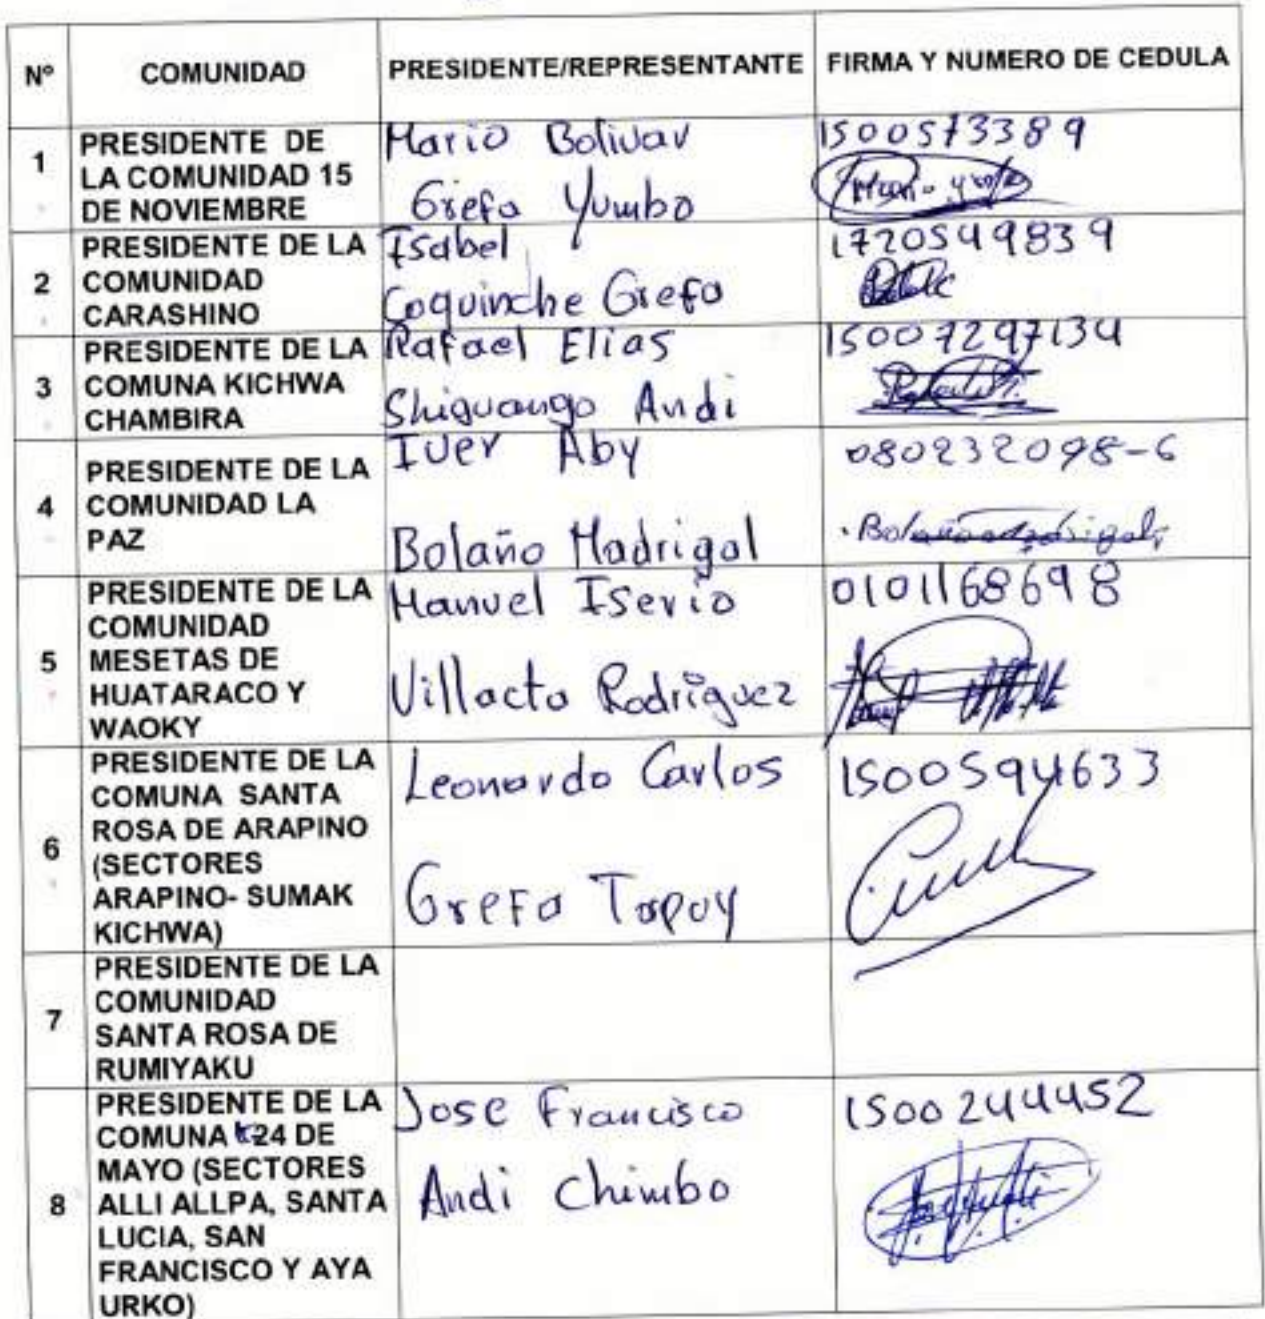 Nº COMUNIDAD PRESIDENTE/REPRESENTANTE FIRMA Y NUMERO DE CEDULA
1
PRESIDENTE DE
LA COMUNIDAD 15
DE NOVIEMBRE
Mario Bolivar
Grefa Yumbo
1500573389
2
PRESIDENTE DE LA
COMUNIDAD
CARASHINO
Isabel
Coquinche Grefa
1720549839
3
PRESIDENTE DE LA
COMUNA KICHWA
CHAMBIRA
Rafael Elias
Shiguango Andi
15007297134
4
PRESIDENTE DE LA
COMUNIDAD LA
PAZ
Iver Aby
Bolaño Madrigal
080232098-6
Bolaño Madrigal
5
PRESIDENTE DE LA
COMUNIDAD
MESETAS DE
HUATARACO Y
WAOKY
Manuel Iserio
Villacta Rodriguez
0101168698
6
PRESIDENTE DE LA
COMUNA SANTA
ROSA DE ARAPINO
(SECTORES
ARAPINO- SUMAK
KICHWA)
Leonardo Carlos
Grefa Tapuy
1500594633
7
PRESIDENTE DE LA
COMUNIDAD
SANTA ROSA DE
RUMIYAKU
8
PRESIDENTE DE LA
COMUNA 24 DE
MAYO (SECTORES
ALLI ALLPA, SANTA
LUCIA, SAN
FRANCISCO Y AYA
URKO)
Jose Francisco
Andi Chimbo
1500244452